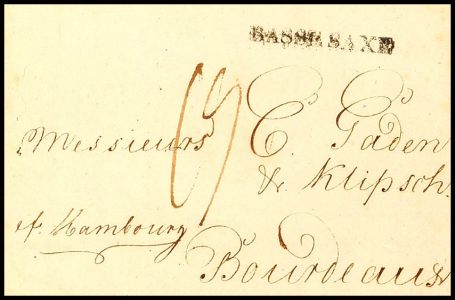 BASSE SAXE
Messieurs C. Gaden
& Klipsch.
ef. Hambourg
Bourdeaux